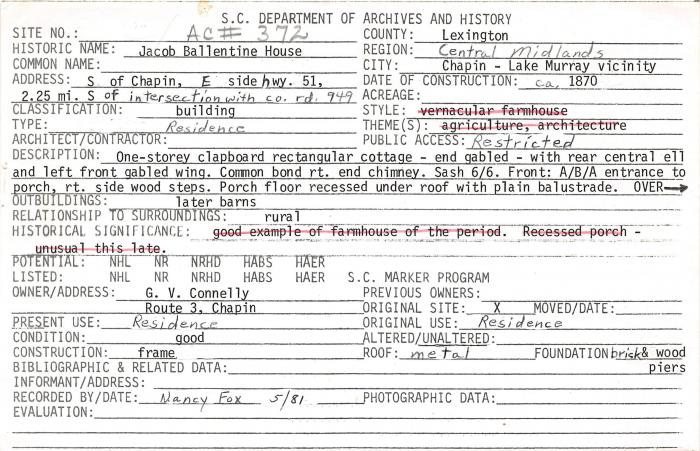 S.C. DEPARTMENT OF ARCHIVES AND HISTORY
SITE NO.: AC# 372 COUNTY: Lexington
HISTORIC NAME: Jacob Ballentine House REGION: Central Midlands
COMMON NAME: CITY: Chapin - Lake Murray vicinity
ADDRESS: S of Chapin, E side hwy. 51, DATE OF CONSTRUCTION: ca. 1870
2.25 mi. S of intersection with co. rd. 949 ACREAGE:
CLASSIFICATION: building STYLE: vernacular farmhouse
TYPE: Residence THEME(S): agriculture, architecture
ARCHITECT/CONTRACTOR: PUBLIC ACCESS: Restricted
DESCRIPTION: One-storey clapboard rectangular cottage - end gabled - with rear central ell
and left front gabled wing. Common bond rt. end chimney. Sash 6/6. Front: A/B/A entrance to
porch, rt. side wood steps. Porch floor recessed under roof with plain balustrade. OVER→
OUTBUILDINGS: later barns
RELATIONSHIP TO SURROUNDINGS: rural
HISTORICAL SIGNIFICANCE: good example of farmhouse of the period. Recessed porch -
unusual this late.
POTENTIAL: NHL NR NRHD HABS HAER
LISTED: NHL NR NRHD HABS HAER S.C. MARKER PROGRAM
OWNER/ADDRESS: G. V. Connelly PREVIOUS OWNERS:
Route 3, Chapin ORIGINAL SITE: X MOVED/DATE:
PRESENT USE: Residence ORIGINAL USE: Residence
CONDITION: good ALTERED/UNALTERED:
CONSTRUCTION: frame ROOF: metal FOUNDATION brick & wood
BIBLIOGRAPHIC & RELATED DATA: piers
INFORMANT/ADDRESS:
RECORDED BY/DATE: Nancy Fox 5/81 PHOTOGRAPHIC DATA:
EVALUATION: